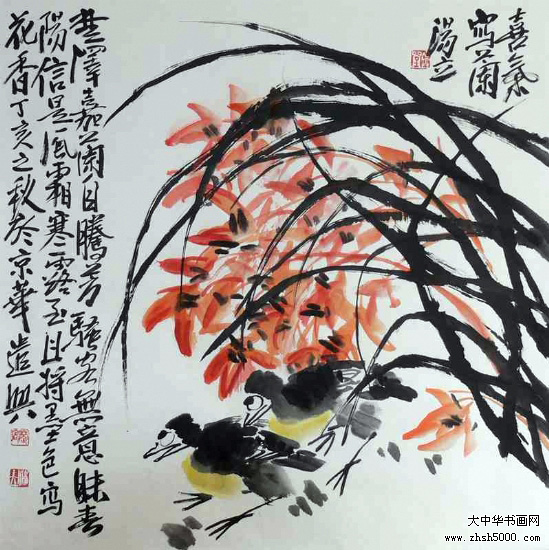 喜氣
寫蘭
湯立
楚澤嘉蘭自騰芳騷客無意昧春
陽信是風霜寒露至且將墨色寫
花香丁亥之秋於京華遣興
大中华书画网
www.zhsh5000.com